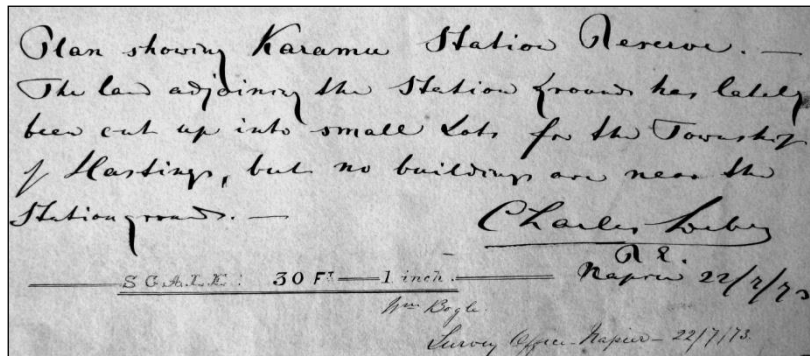 Plan showing Karamu Station Reserve. —
The land adjoining the Station grounds has lately
been cut up into small Lots for the Township
of Hastings, but no buildings are near the
Station grounds. —
Charles Weber
R.E.
Napier 22/7/73
SCALE: 30 FT — 1 inch.
Wm Bogle.
Survey Office - Napier - 22/7/73.